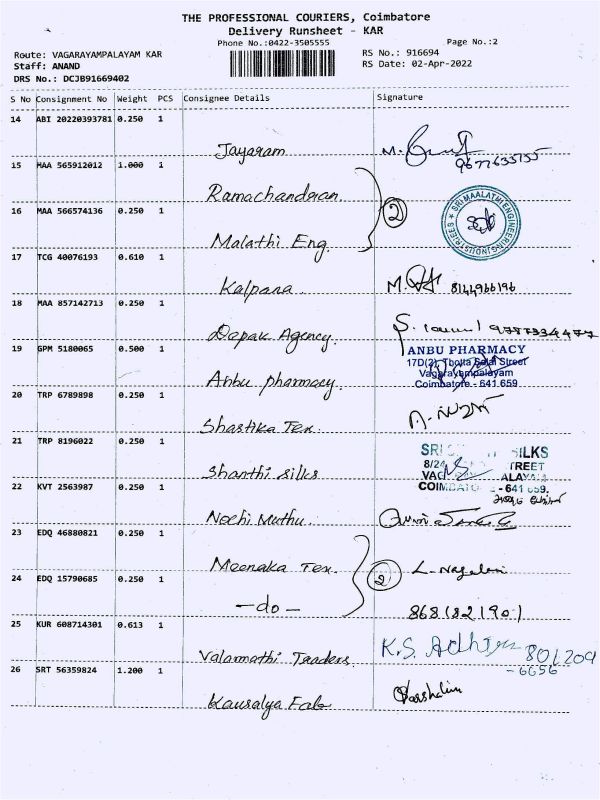 THE PROFESSIONAL COURIERS, Coimbatore
Delivery Runsheet - KAR
Phone No.:0422-3505555
Page No.:2
Route: VAGARAYAMPALAYAM KAR
RS No.: 916694
Staff: ANAND
RS Date: 02-Apr-2022
DRS No.: DCJB91669402
S No Consignment No Weight PCS Consignee Details Signature
14 ABI 20220393781 0.250 1
Jayaram M.
9677633755
15 MAA 565912012 1.000 1
Ramachandran
16 MAA 566574136 0.250 1
2
SRI MAALATHI ENGINEERING INDUSTRIES
Malathi Eng.
17 TCG 40076193 0.610 1
Kalpana M. 8144966196
18 MAA 857142713 0.250 1
Dapak Agency.
19 GPM 5180065 0.500 1
ANBU PHARMACY
17D(2), Thotta Salai Street
Vagarayampalayam
Coimbatore - 641 659
Anbu pharmacy.
20 TRP 6789898 0.250 1
Shastika Tex
21 TRP 8196022 0.250 1
SRI SILKS
8/24 STREET
- 641 659.
Shanthi Silks
22 KVT 2563987 0.250 1
Nochi Muthu.
23 EDQ 46880821 0.250 1
Meenaka Tex.
2
24 EDQ 15790685 0.250 1
-do-
25 KUR 608714301 0.613 1
Valarmathi Traders K.S.
801209
-6656
26 SRT 56359824 1.200 1
Kausalya Fab